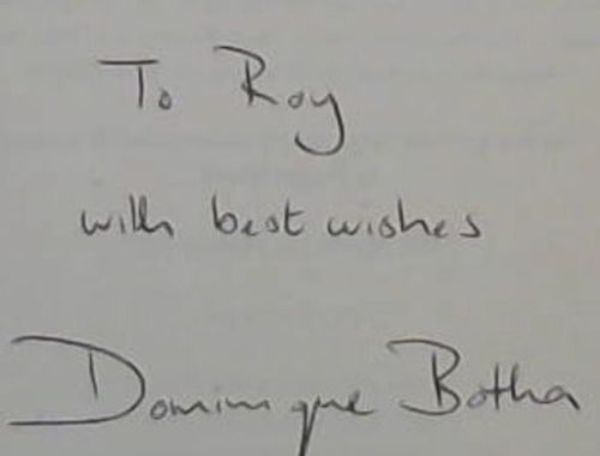 To Roy
with best wishes
Dominique Botha